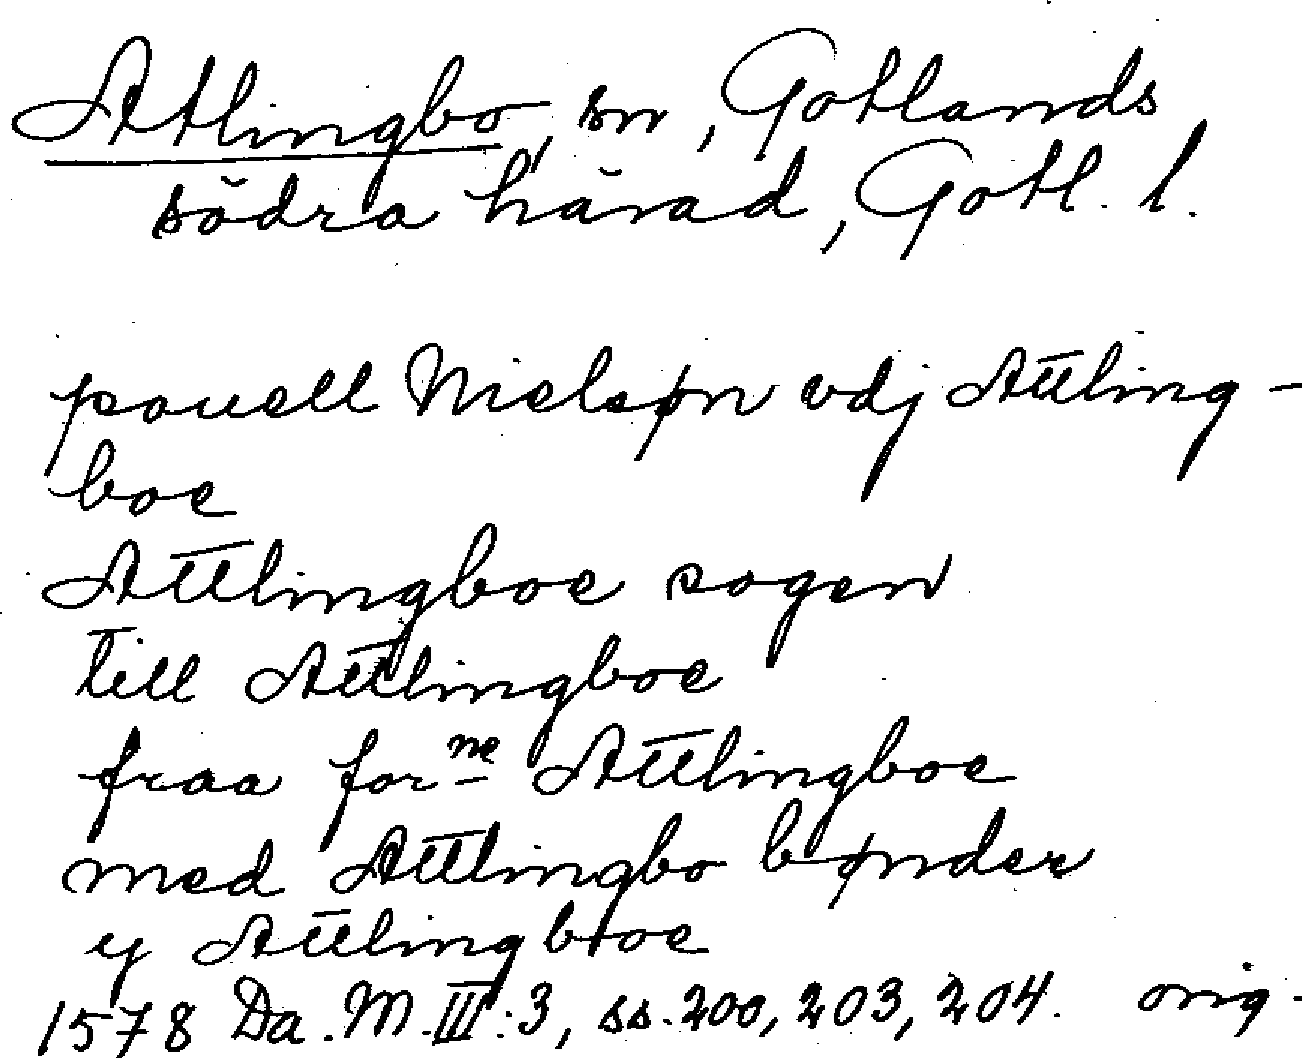 Atlingbo, sn, Gotlands
södra härad, Gotl. l.
pouell Nielsøn vdj Attling-
boe
Attlingboe sogen
till Attlingboe
fraa for ne Attlingboe
med Attlingbo bønder
y Attlingboe
1578 Da. M. III:3, ss. 200, 203, 204. orig.